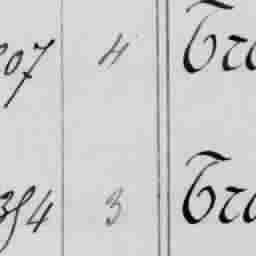 207 4 Tra
354 3 Tra